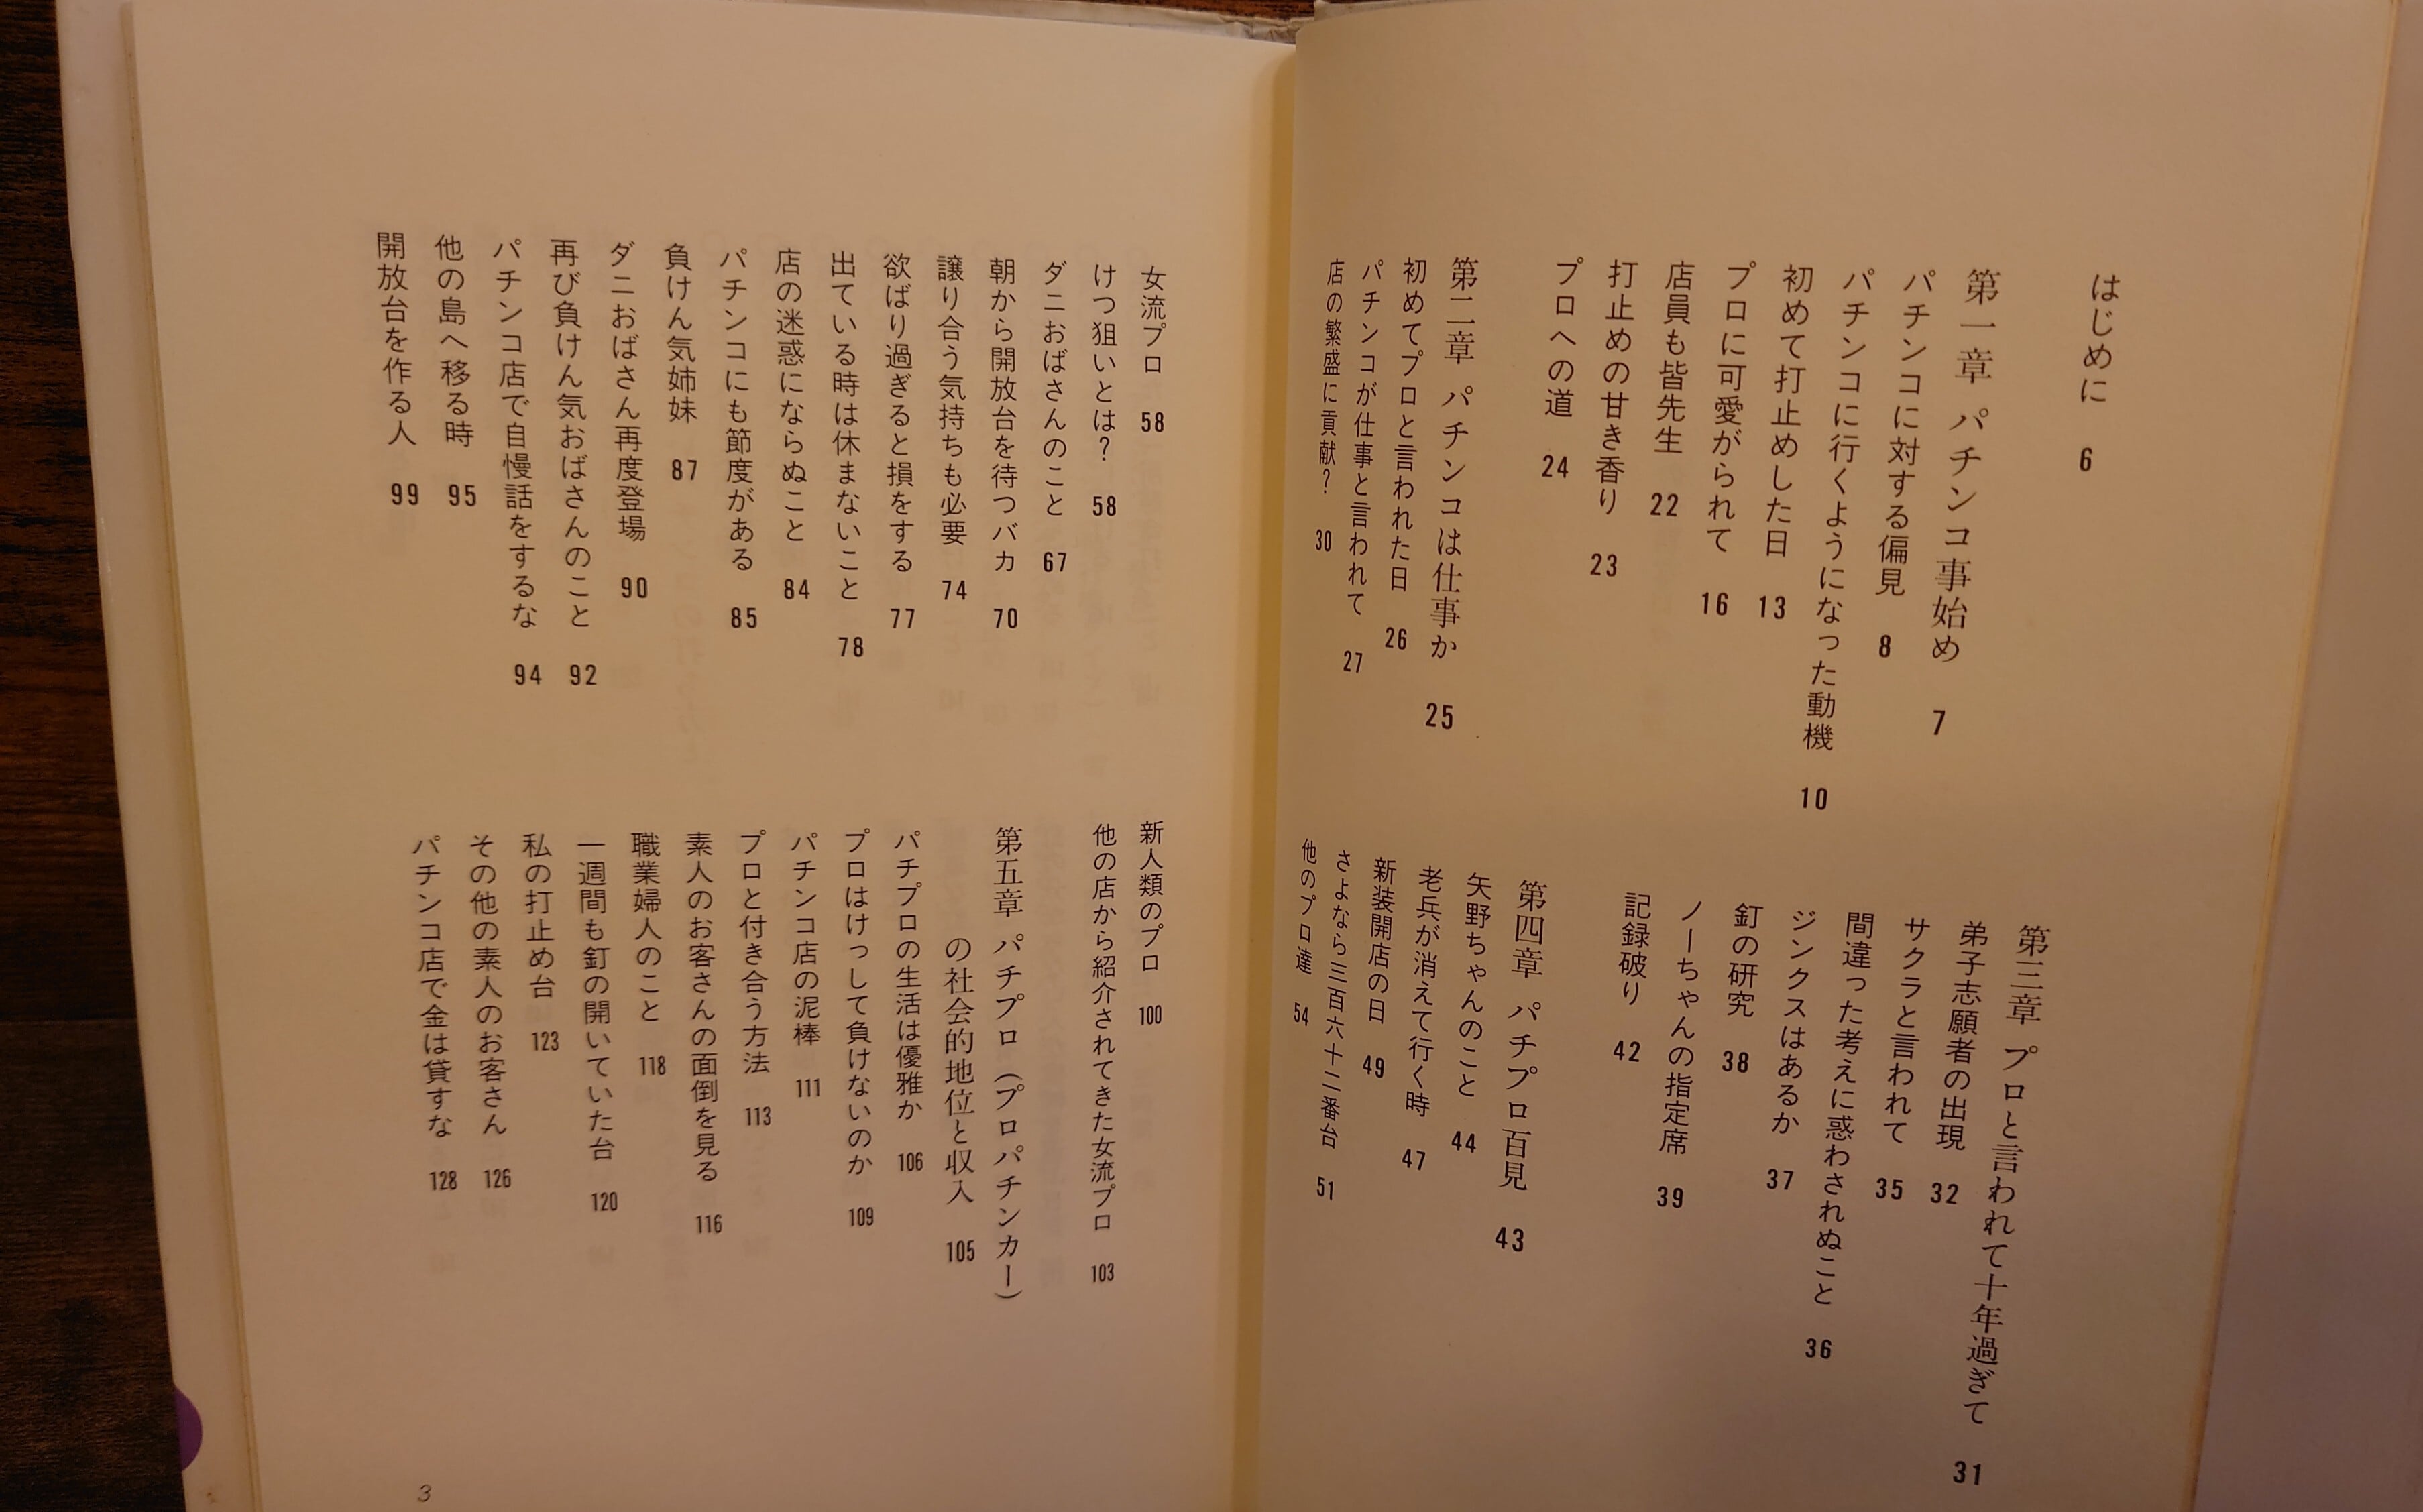 はじめに 6
第一章 パチンコ事始め 7
パチンコに対する偏見 8
パチンコに行くようになった動機 10
初めて打止めした日 13
プロに可愛がられて 16
店員も皆先生 22
打止めの甘き香り 23
プロへの道 24
第二章 パチンコは仕事か 25
初めてプロと言われた日 26
パチンコが仕事と言われて 27
店の繁盛に貢献? 30
第三章 プロと言われて十年過ぎて 31
弟子志願者の出現 32
サクラと言われて 35
間違った考えに惑わされぬこと 36
ジンクスはあるか 37
釘の研究 38
ノーちゃんの指定席 39
記録破り 42
第四章 パチプロ百見 43
矢野ちゃんのこと 44
老兵が消えて行く時 47
新装開店の日 49
さよなら三百六十二番台 51
他のプロ達 54
女流プロ 58
けつ狙いとは? 58
ダニおばさんのこと 67
朝から開放台を待つバカ 70
譲り合う気持ちも必要 74
欲ばり過ぎると損をする 77
出ている時は休まないこと 78
店の迷惑にならぬこと 84
パチンコにも節度がある 85
負けん気姉妹 87
ダニおばさん再度登場 90
再び負けん気おばさんのこと 92
パチンコ店で自慢話をするな 94
他の島へ移る時 95
開放台を作る人 99
新人類のプロ 100
他の店から紹介されてきた女流プロ 103
第五章 パチプロ(プロパチンカー)
の社会的地位と収入 105
パチプロの生活は優雅か 106
プロはけっして負けないのか 109
パチンコ店の泥棒 111
プロと付き合う方法 113
素人のお客さんの面倒を見る 116
職業婦人のこと 118
一週間も釘の開いていた台 120
私の打止め台 123
その他の素人のお客さん 126
パチンコ店で金は貸すな 128
3